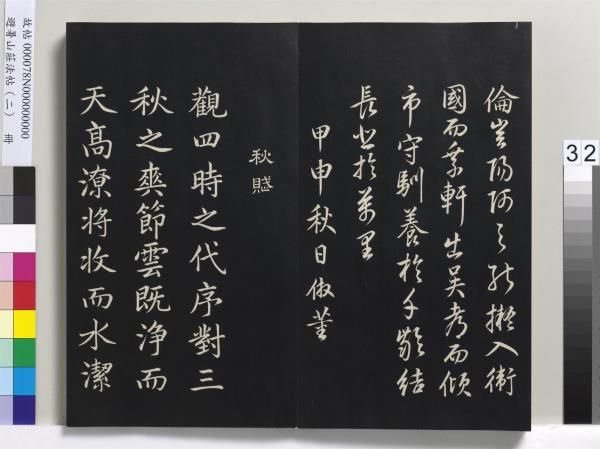 倫豈陽阿之能擬入衛
國而乘軒出吳都而傾
市守馴養於千齡結
長悲於萬里
甲申秋日倣董
秋賦
觀四時之代序對三
秋之爽節雲既淨而
天高潦將收而水潔
故帖 000078N000000000
避暑山莊法帖（二） 冊
32